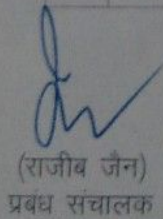 (राजीब जैन)
प्रबंध संचालक